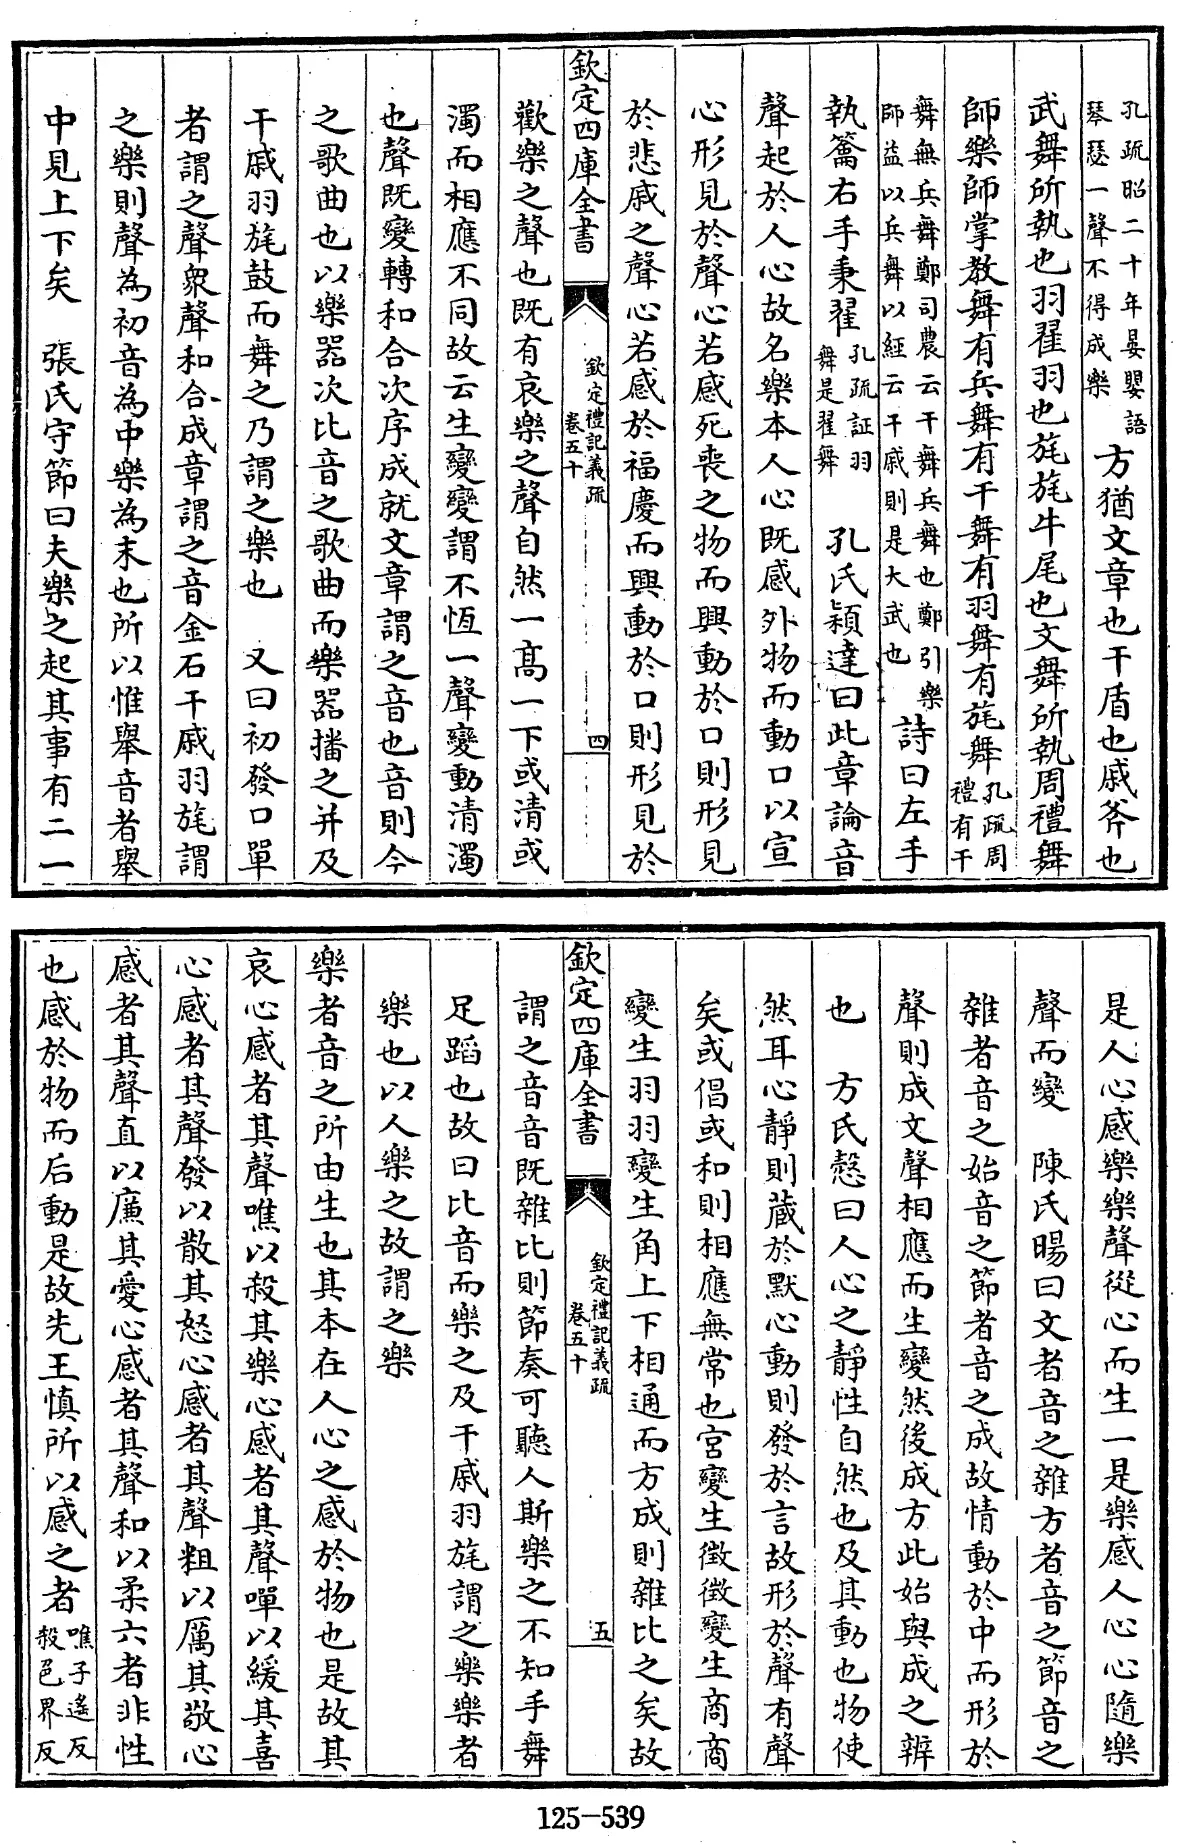 孔疏昭二十年晏嬰語
琴瑟一聲不得成樂
方猶文章也干盾也戚斧也
武舞所執也羽翟羽也旄旄牛尾也文舞所執周禮舞
師樂師掌教舞有兵舞有干舞有羽舞有旄舞
孔疏周
禮有干
舞無兵舞鄭司農云干舞兵舞也鄭引樂
師益以兵舞以經云干戚則是大武也
詩曰左手
執籥右手秉翟
孔疏証羽
舞是翟舞
孔氏穎達曰此章論音
聲起於人心故名樂本人心既感外物而動口以宣
心形見於聲心若感死喪之物而興動於口則形見
於悲戚之聲心若感於福慶而興動於口則形見於
欽定四庫全書
欽定禮記義疏
卷五十
四
歡樂之聲也既有哀樂之聲自然一高一下或清或
濁而相應不同故云生變變謂不恆一聲變動清濁
也聲既變轉和合次序成就文章謂之音也音則今
之歌曲也以樂器次比音之歌曲而樂器播之并及
干戚羽旄鼓而舞之乃謂之樂也　又曰初發口單
者謂之聲衆聲和合成章謂之音金石干戚羽旄謂
之樂則聲為初音為中樂為末也所以惟舉音者舉
中見上下矣　張氏守節曰夫樂之起其事有二一
是人心感樂樂聲從心而生一是樂感人心心隨樂
聲而變　陳氏暘曰文者音之雜方者音之節音之
雜者音之始音之節者音之成故情動於中而形於
聲則成文聲相應而生變然後成方此始與成之辨
也　方氏慤曰人心之靜性自然也及其動也物使
然耳心靜則蔵於默心動則發於言故形於聲有聲
矣或倡或和則相應無常也宮變生徵徵變生商商
變生羽羽變生角上下相通而方成則雜比之矣故
欽定四庫全書
欽定禮記義疏
卷五十
五
謂之音音既雜比則節奏可聽人斯樂之不知手舞
足蹈也故曰比音而樂之及干戚羽旄謂之樂樂者
樂也以人樂之故謂之樂
樂者音之所由生也其本在人心之感於物也是故其
哀心感者其聲噍以殺其樂心感者其聲嘽以緩其喜
心感者其聲發以散其怒心感者其聲粗以厲其敬心
感者其聲直以廉其愛心感者其聲和以柔六者非性
也感於物而后動是故先王慎所以感之者
噍子遙反
殺色界反
125-539